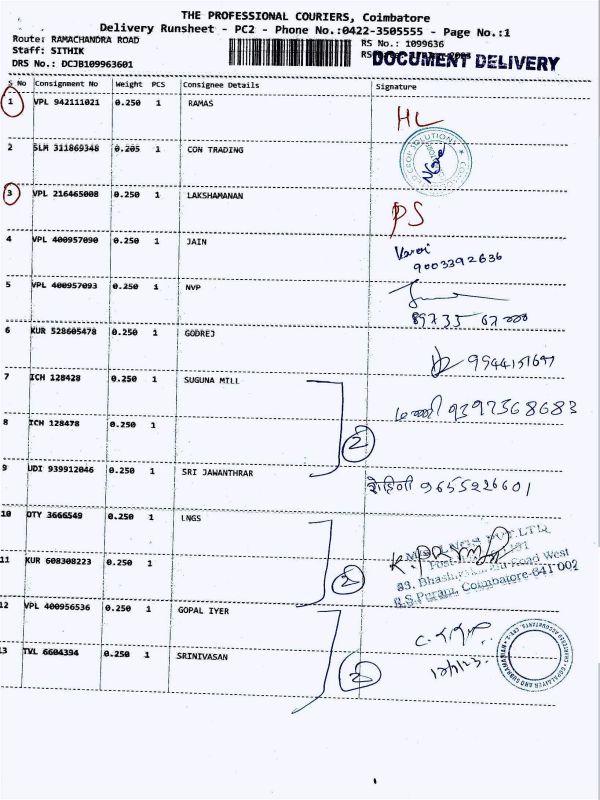 THE PROFESSIONAL COURIERS, Coimbatore
Delivery Runsheet - PC2 - Phone No.:0422-3505555 - Page No.:1
Route: RAMACHANDRA ROAD
RS No.: 1099636
Staff: SITHIK
DOCUMENT DELIVERY
DRS No.: DCJB109963601
S No Consignment No Weight PCS Consignee Details Signature
1 VPL 942111021 0.250 1 RAMAS HL
2 SLM 311869348 0.205 1 CON TRADING
3 VPL 216465008 0.250 1 LAKSHAMANAN PS
4 VPL 400957090 0.250 1 JAIN
9003392636
5 VPL 400957093 0.250 1 NVP
6 KUR 528605478 0.250 1 GODREJ
7 ICH 128428 0.250 1 SUGUNA MILL
9397368683
8 ICH 128478 0.250 1
2
9 UDI 939912046 0.250 1 SRI JAWANTHRAR
9655926601
10 DTY 3666549 0.250 1 LNGS
11 KUR 608308223 0.250 1
2
Road West
R.S Puram, Coimbatore-641 002
12 VPL 400956536 0.250 1 GOPAL IYER
13 TVL 6604394 0.250 1 SRINIVASAN
2